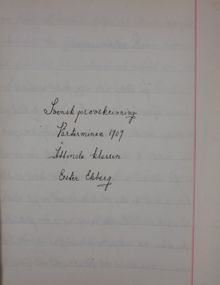 Svensk provskrivning
Vårterminen 1907
Åttonde klassen
Ester Ekberg